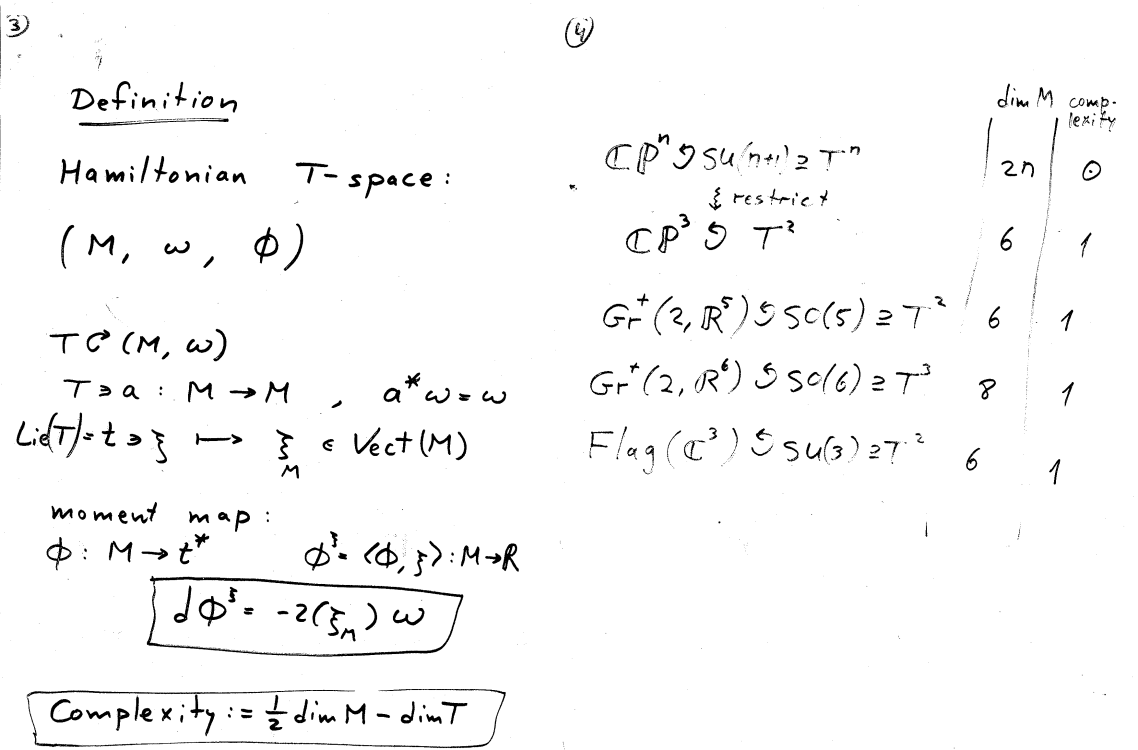 ③
Definition
Hamiltonian T-space:
(M, ω, Φ)
T ↻ (M, ω)
T ∋ a : M → M , a*ω = ω
Lie(T) = t ∋ ξ ⟼ ξ_M ∈ Vect(M)
moment map:
Φ : M → t* Φ^ξ = ⟨Φ, ξ⟩ : M → R
dΦ^ξ = -2(ξ_M) ω
Complexity := ½ dim M - dim T
④
dim M complexity
ℂℙⁿ ↺ SU(n+1) ⊇ Tⁿ 2n 0
⥾ restrict
ℂℙ³ ↺ T² 6 1
Gr⁺(2, ℝ⁵) ↺ SO(5) ⊇ T² 6 1
Gr⁺(2, ℝ⁶) ↺ SO(6) ⊇ T³ 8 1
Flag(ℂ³) ↺ SU(3) ⊇ T² 6 1